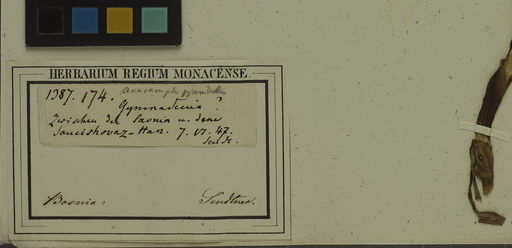 HERBARIUM REGIUM MONACENSE.
1387. 174. Anacamptis pyramidalis
Gymnadenia ?
Zwischen der Savnia u. dem
Han. 7. VI. 47.
Sendt.
Bosnia: Sendtner.